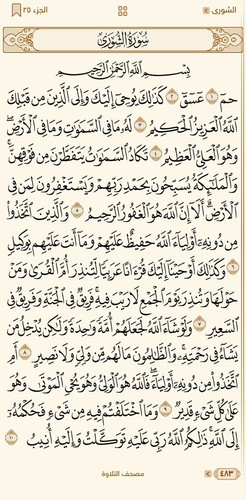 الشورى
الجزء ٢٥
سُورَةُ الشُّورَىٰ
بِسْمِ اللَّهِ الرَّحْمَٰنِ الرَّحِيمِ
حمٓ ١ عٓسٓقٓ ٢ كَذَٰلِكَ يُوحِىٓ إِلَيْكَ وَإِلَى ٱلَّذِينَ مِن قَبْلِكَ
ٱللَّهُ ٱلْعَزِيزُ ٱلْحَكِيمُ ٣ لَهُۥ مَا فِى ٱلسَّمَٰوَٰتِ وَمَا فِى ٱلْأَرْضِ ۖ
وَهُوَ ٱلْعَلِىُّ ٱلْعَظِيمُ ٤ تَكَادُ ٱلسَّمَٰوَٰتُ يَتَفَطَّرْنَ مِن فَوْقِهِنَّ ۚ
وَٱلْمَلَٰٓئِكَةُ يُسَبِّحُونَ بِحَمْدِ رَبِّهِمْ وَيَسْتَغْفِرُونَ لِمَن فِى
ٱلْأَرْضِ ۗ أَلَآ إِنَّ ٱللَّهَ هُوَ ٱلْغَفُورُ ٱلرَّحِيمُ ٥ وَٱلَّذِينَ ٱتَّخَذُوا۟
مِن دُونِهِۦٓ أَوْلِيَآءَ ٱللَّهُ حَفِيظٌ عَلَيْهِمْ وَمَآ أَنتَ عَلَيْهِم بِوَكِيلٍ
٦ وَكَذَٰلِكَ أَوْحَيْنَآ إِلَيْكَ قُرْءَانًا عَرَبِيًّا لِّتُنذِرَ أُمَّ ٱلْقُرَىٰ وَمَنْ
حَوْلَهَا وَتُنذِرَ يَوْمَ ٱلْجَمْعِ لَا رَيْبَ فِيهِ ۚ فَرِيقٌ فِى ٱلْجَنَّةِ وَفَرِيقٌ فِى
ٱلسَّعِيرِ ٧ وَلَوْ شَآءَ ٱللَّهُ لَجَعَلَهُمْ أُمَّةً وَٰحِدَةً وَلَٰكِن يُدْخِلُ مَن
يَشَآءُ فِى رَحْمَتِهِۦ ۚ وَٱلظَّٰلِمُونَ مَا لَهُم مِّن وَلِىٍّ وَلَا نَصِيرٍ ٨ أَمِ
ٱتَّخَذُوا۟ مِن دُونِهِۦٓ أَوْلِيَآءَ ۖ فَٱللَّهُ هُوَ ٱلْوَلِىُّ وَهُوَ يُحْىِ ٱلْمَوْتَىٰ وَهُوَ
عَلَىٰ كُلِّ شَىْءٍ قَدِيرٌ ٩ وَمَا ٱخْتَلَفْتُمْ فِيهِ مِن شَىْءٍ فَحُكْمُهُۥٓ
إِلَى ٱللَّهِ ۚ ذَٰلِكُمُ ٱللَّهُ رَبِّى عَلَيْهِ تَوَكَّلْتُ وَإِلَيْهِ أُنِيبُ ١٠
٤٨٣
مصحف التلاوة